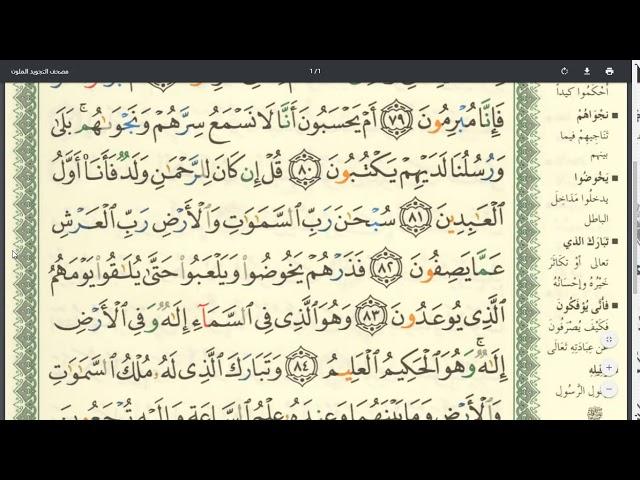 مصحف التجويد الملون
1 / 1
فَإِنَّا مُبْرِمُونَ ٧٩ أَمْ يَحْسَبُونَ أَنَّا لَا نَسْمَعُ سِرَّهُمْ وَنَجْوَىٰهُم ۚ بَلَىٰ
وَرُسُلُنَا لَدَيْهِمْ يَكْتُبُونَ ٨٠ قُلْ إِن كَانَ لِلرَّحْمَٰنِ وَلَدٌ فَأَنَا۠ أَوَّلُ
ٱلْعَٰبِدِينَ ٨١ سُبْحَٰنَ رَبِّ ٱلسَّمَٰوَٰتِ وَٱلْأَرْضِ رَبِّ ٱلْعَرْشِ
عَمَّا يَصِفُونَ ٨٢ فَذَرْهُمْ يَخُوضُوا۟ وَيَلْعَبُوا۟ حَتَّىٰ يُلَٰقُوا۟ يَوْمَهُمُ
ٱلَّذِى يُوعَدُونَ ٨٣ وَهُوَ ٱلَّذِى فِى ٱلسَّمَآءِ إِلَٰهٌ وَفِى ٱلْأَرْضِ
إِلَٰهٌ ۚ وَهُوَ ٱلْحَكِيمُ ٱلْعَلِيمُ ٨٤ وَتَبَارَكَ ٱلَّذِى لَهُۥ مُلْكُ ٱلسَّمَٰوَٰتِ
وَٱلْأَرْضِ وَمَا بَيْنَهُمَا وَعِندَهُۥ عِلْمُ ٱلسَّاعَةِ وَإِلَيْهِ تُرْجَعُونَ
أَحْكَمُوا كَيْداً
■ نَجْوَاهُمْ
تَنَاجِيهِمْ فِيمَا
بَيْنَهُمْ
■ يَخُوضُوا
يَدْخُلُوا مَدَاخِلَ
الْبَاطِلِ
■ تَبَارَكَ الَّذِي
تَعَالَى أَوْ تَكَاثَرَ
خَيْرُهُ وَإِحْسَانُهُ
■ فَأَنَّى يُؤْفَكُونَ
فَكَيْفَ يُصْرَفُونَ
عَنْ عِبَادَتِهِ تَعَالَى
الرَّسُولِ
ﷺ